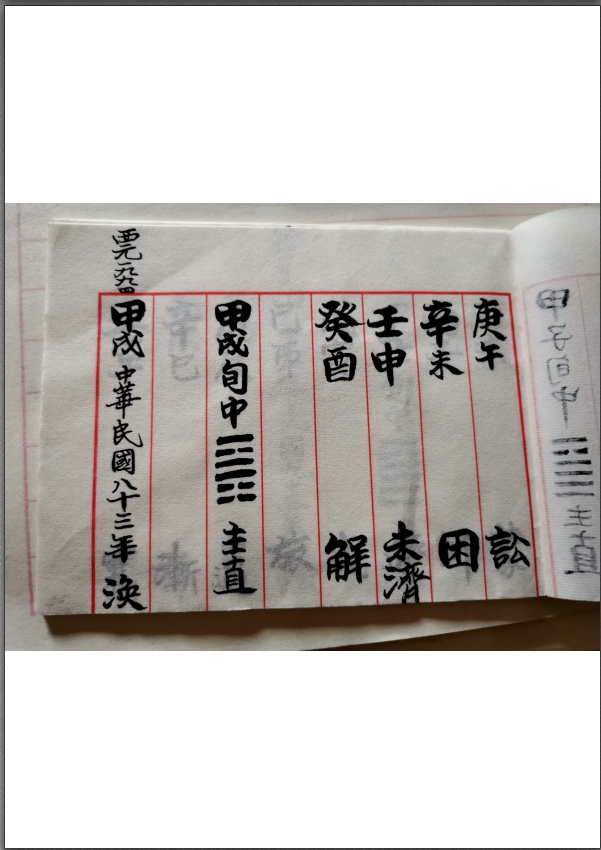 庚午 訟
辛未 困
壬申 未濟
癸酉 解
甲戌旬中 主直
西元一九九四
甲戌中華民國八十三年 渙